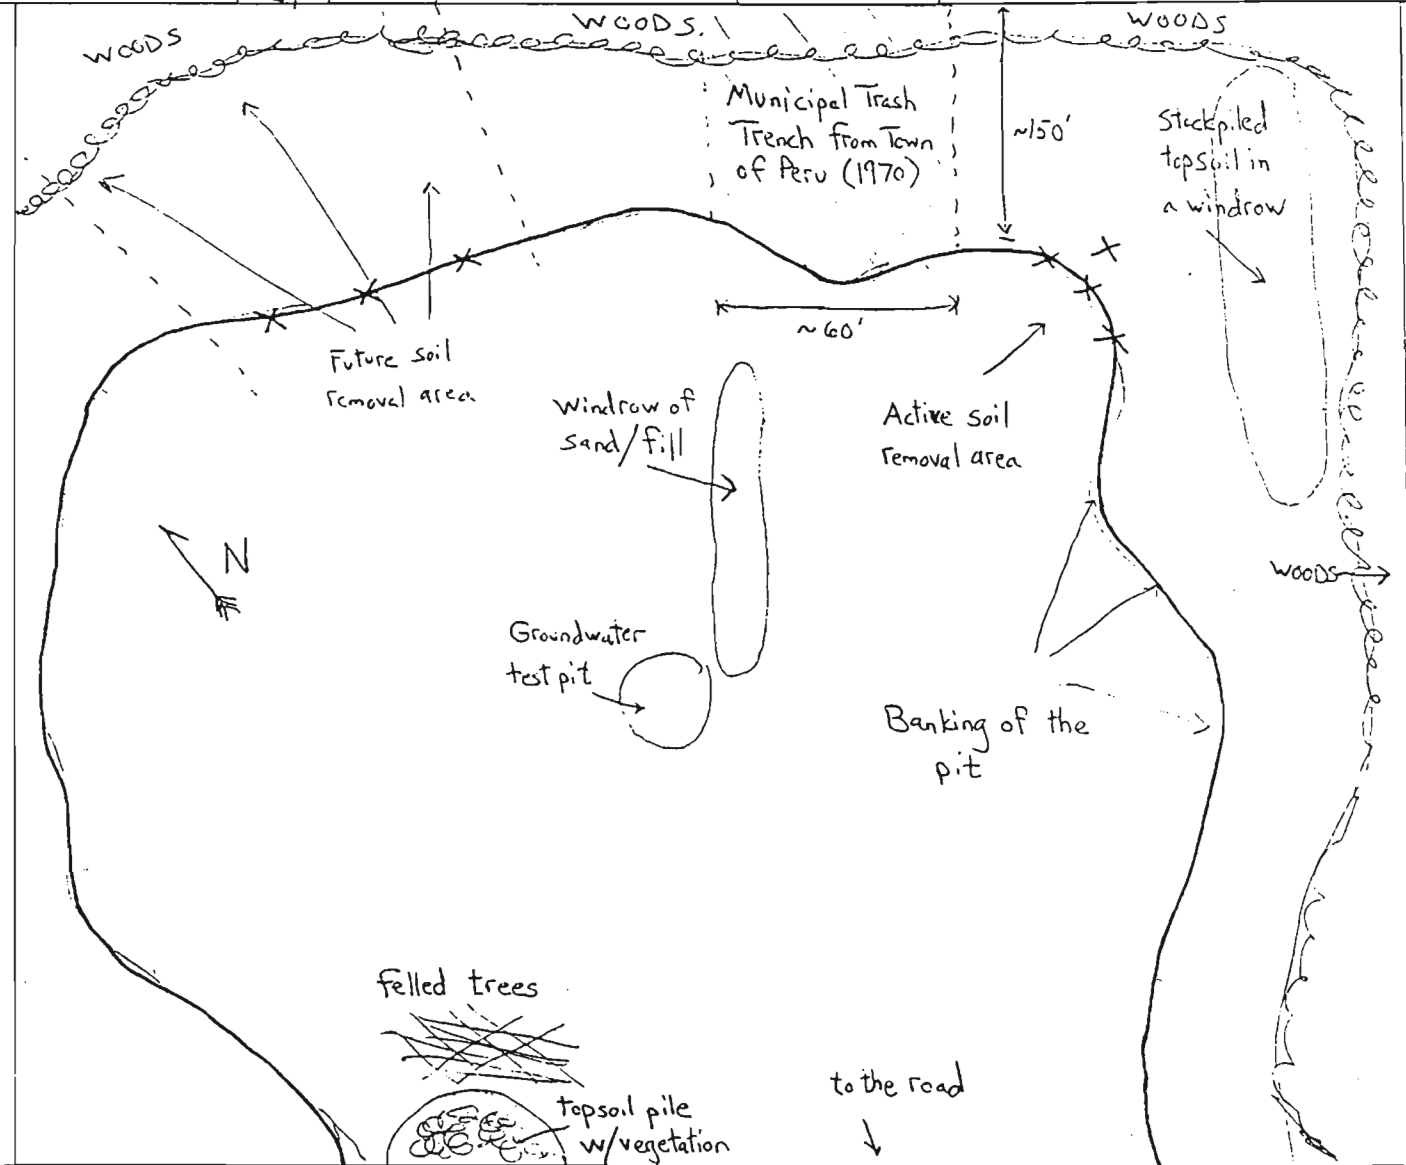 WOODS
WOODS.
WOODS
Municipal Trash
Trench from Town
of Peru (1970)
~150'
Stockpiled
topsoil in
a windrow
~60'
Future soil
removal area
Windrow of
sand/fill
Active soil
removal area
N
WOODS
Groundwater
test pit
Banking of the
pit
felled trees
to the road
topsoil pile
w/vegetation